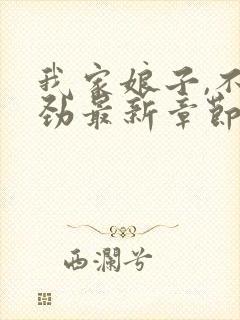 我家娘子,不
劲最新章节
西澜兮